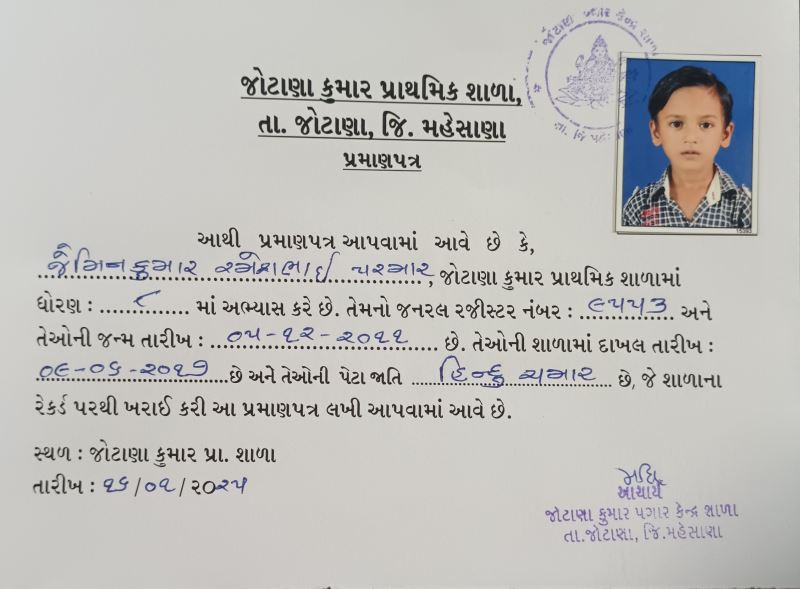 જોટાણા પગાર કેન્દ્ર શાળા
જોટાણા કુમાર પ્રાથમિક શાળા,
તા. જોટાણા, જિ. મહેસાણા
પ્રમાણપત્ર
આથી પ્રમાણપત્ર આપવામાં આવે છે કે,
જૈમિનકુમાર રમેશભાઇ પરમાર, જોટાણા કુમાર પ્રાથમિક શાળામાં
ધોરણ : ૮ માં અભ્યાસ કરે છે. તેમનો જનરલ રજીસ્ટર નંબર : ૯૫૫૩ અને
તેઓની જન્મ તારીખ : ૦૫-૧૨-૨૦૧૧ છે. તેઓની શાળામાં દાખલ તારીખ :
૦૯-૦૬-૨૦૧૭ છે અને તેઓની પેટા જાતિ હિન્દુ ચમાર છે, જે શાળાના
રેકર્ડ પરથી ખરાઈ કરી આ પ્રમાણપત્ર લખી આપવામાં આવે છે.
સ્થળ : જોટાણા કુમાર પ્રા. શાળા
તારીખ : ૧૬/૦૧/૨૦૨૫
આચાર્ય
જોટાણા કુમાર પગાર કેન્દ્ર શાળા
તા.જોટાણા, જિ.મહેસાણા